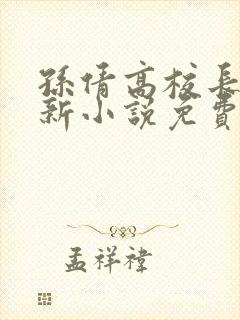 孫倩高校長
新小說免費
孟祥禕